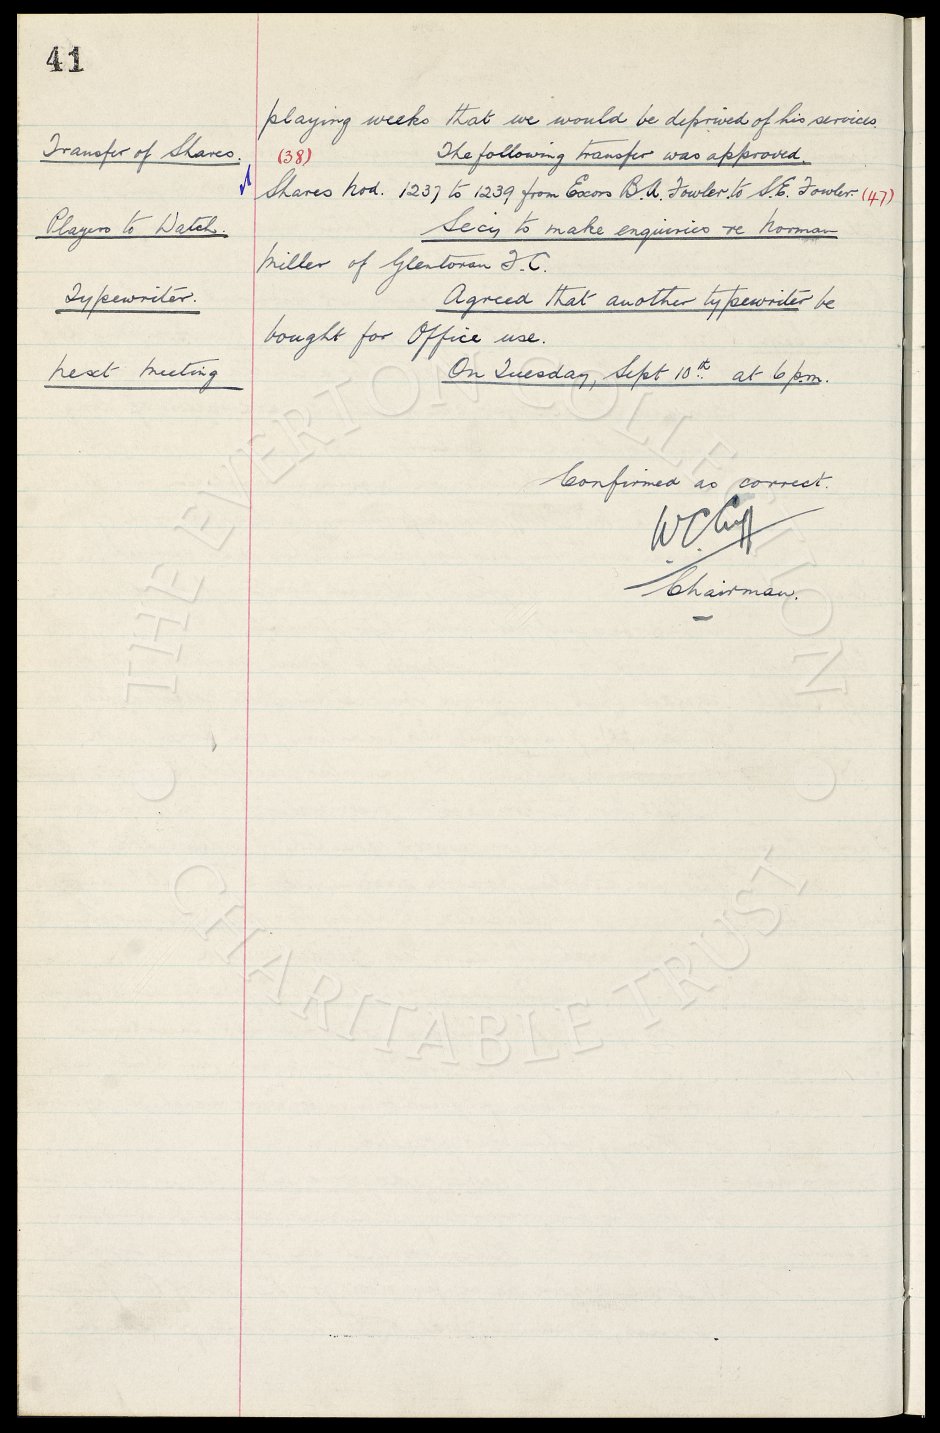 41
playing weeks that we would be deprived of his services.
Transfer of Shares. (38) The following transfer was approved.
Shares Nod. 1237 to 1239 from Excors B.A. Fowler. to S.E. Fowler. (47)
Players to Watch. Secy to make enquiries re Norman
Miller of Glentoran F.C.
Typewriter. Agreed that another typewriter be
bought for Office use.
Next Meeting On Tuesday, Sept 10th at 6 p.m.
Confirmed as correct.
W.C. Cuff
Chairman.
THE EVERTON COLLECTION
CHARITABLE TRUST